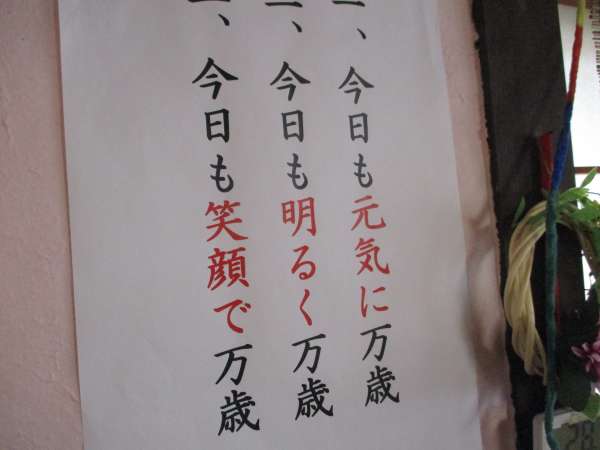 一、今日も元気に万歳
一、今日も明るく万歳
一、今日も笑顔で万歳
28